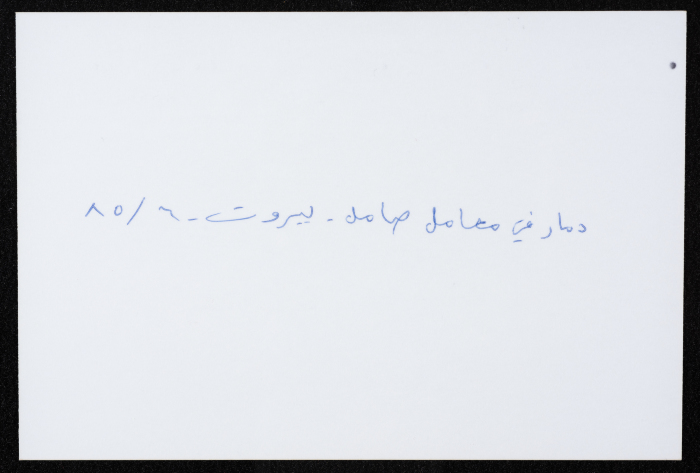 دمار في معامل صامد - بيروت - ٦/٨٥